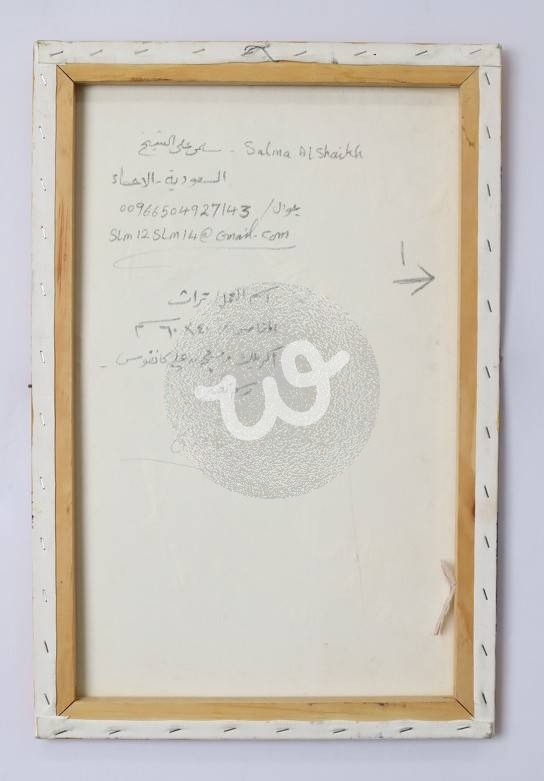 سلمى علي الشيخ - Salma AlShaikh
السعودية - الاحساء
جوال / 00966504927143
SLm12SLm14@Gmail.com
اسم العمل / تراث
المقاس / ٤٠ × ٦٠ سم
على كانفوس -
١
w